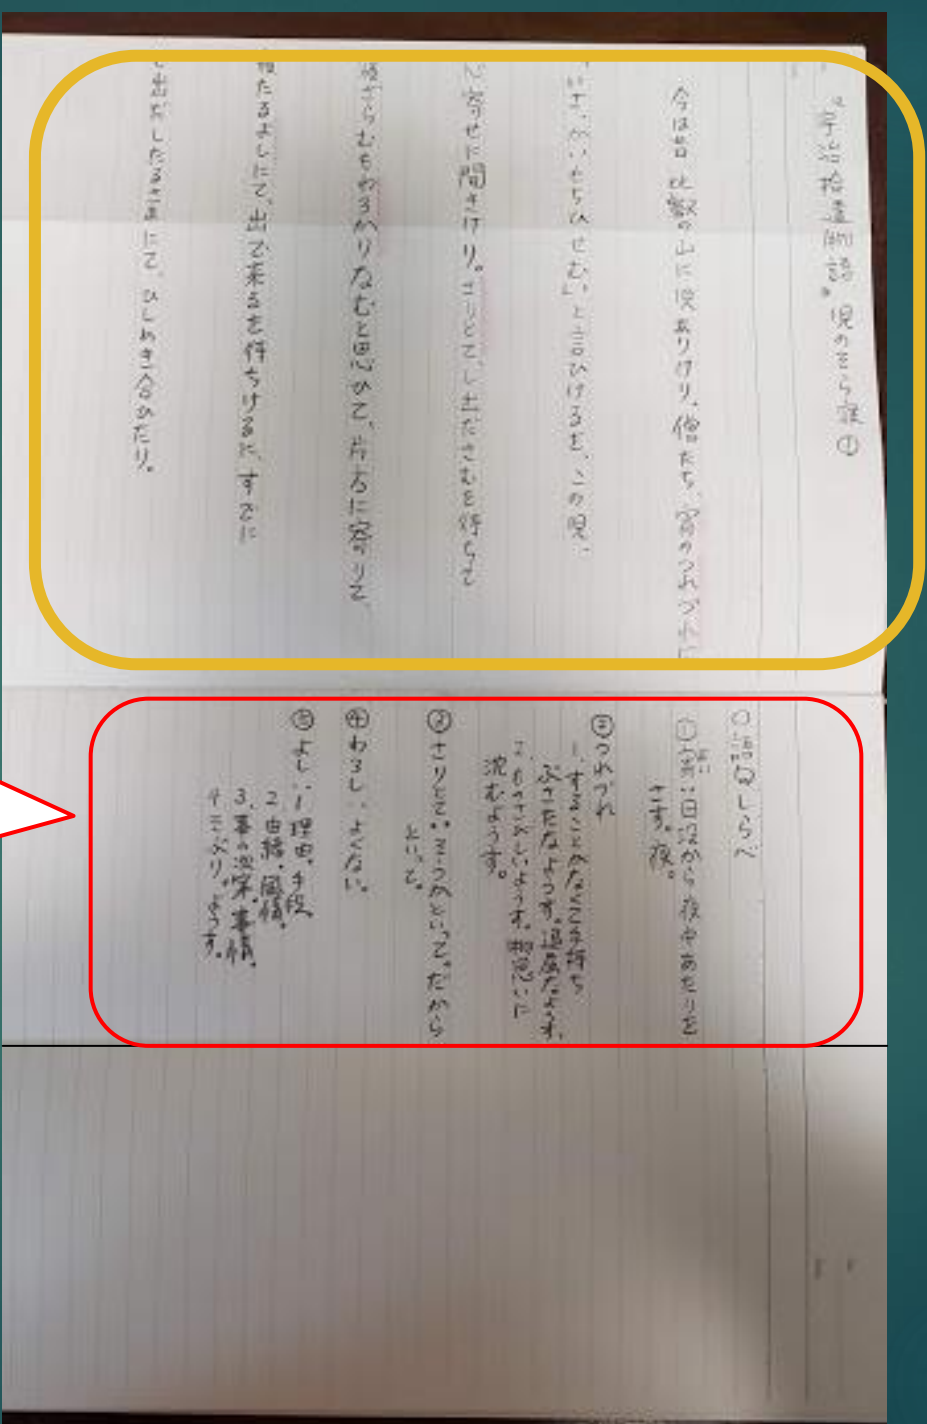 『宇治拾遺物語』児のそら寝①
今は昔、比叡の山に児ありけり。僧たち、宵のつれづれに
いざ、かいもちひせむ」と言ひけるを、この児、
て寄せに聞きけり。さりとて、し出ださむを待ちて
寝ざらむもわろかりなむと思ひて、片方に寄りて、
寝たるよしにて、出で来るを待ちけるに、すでに
し出だしたるさまにて、ひしめき合ひたり。
○語句しらべ
①宵…日没から夜中あたりを
さす。夜。
②つれづれ
1、することがなくて手持ち
ぶさたなようす。退屈なようす。
2、ものさびしいようす。物思いに
沈むようす。
③さりとて…そうかといって。だから
といって。
④わろし…よくない。
⑤よし…1理由。手段。
2由緒。風情。
3、事の次第。事情。
4そぶり。ようす。